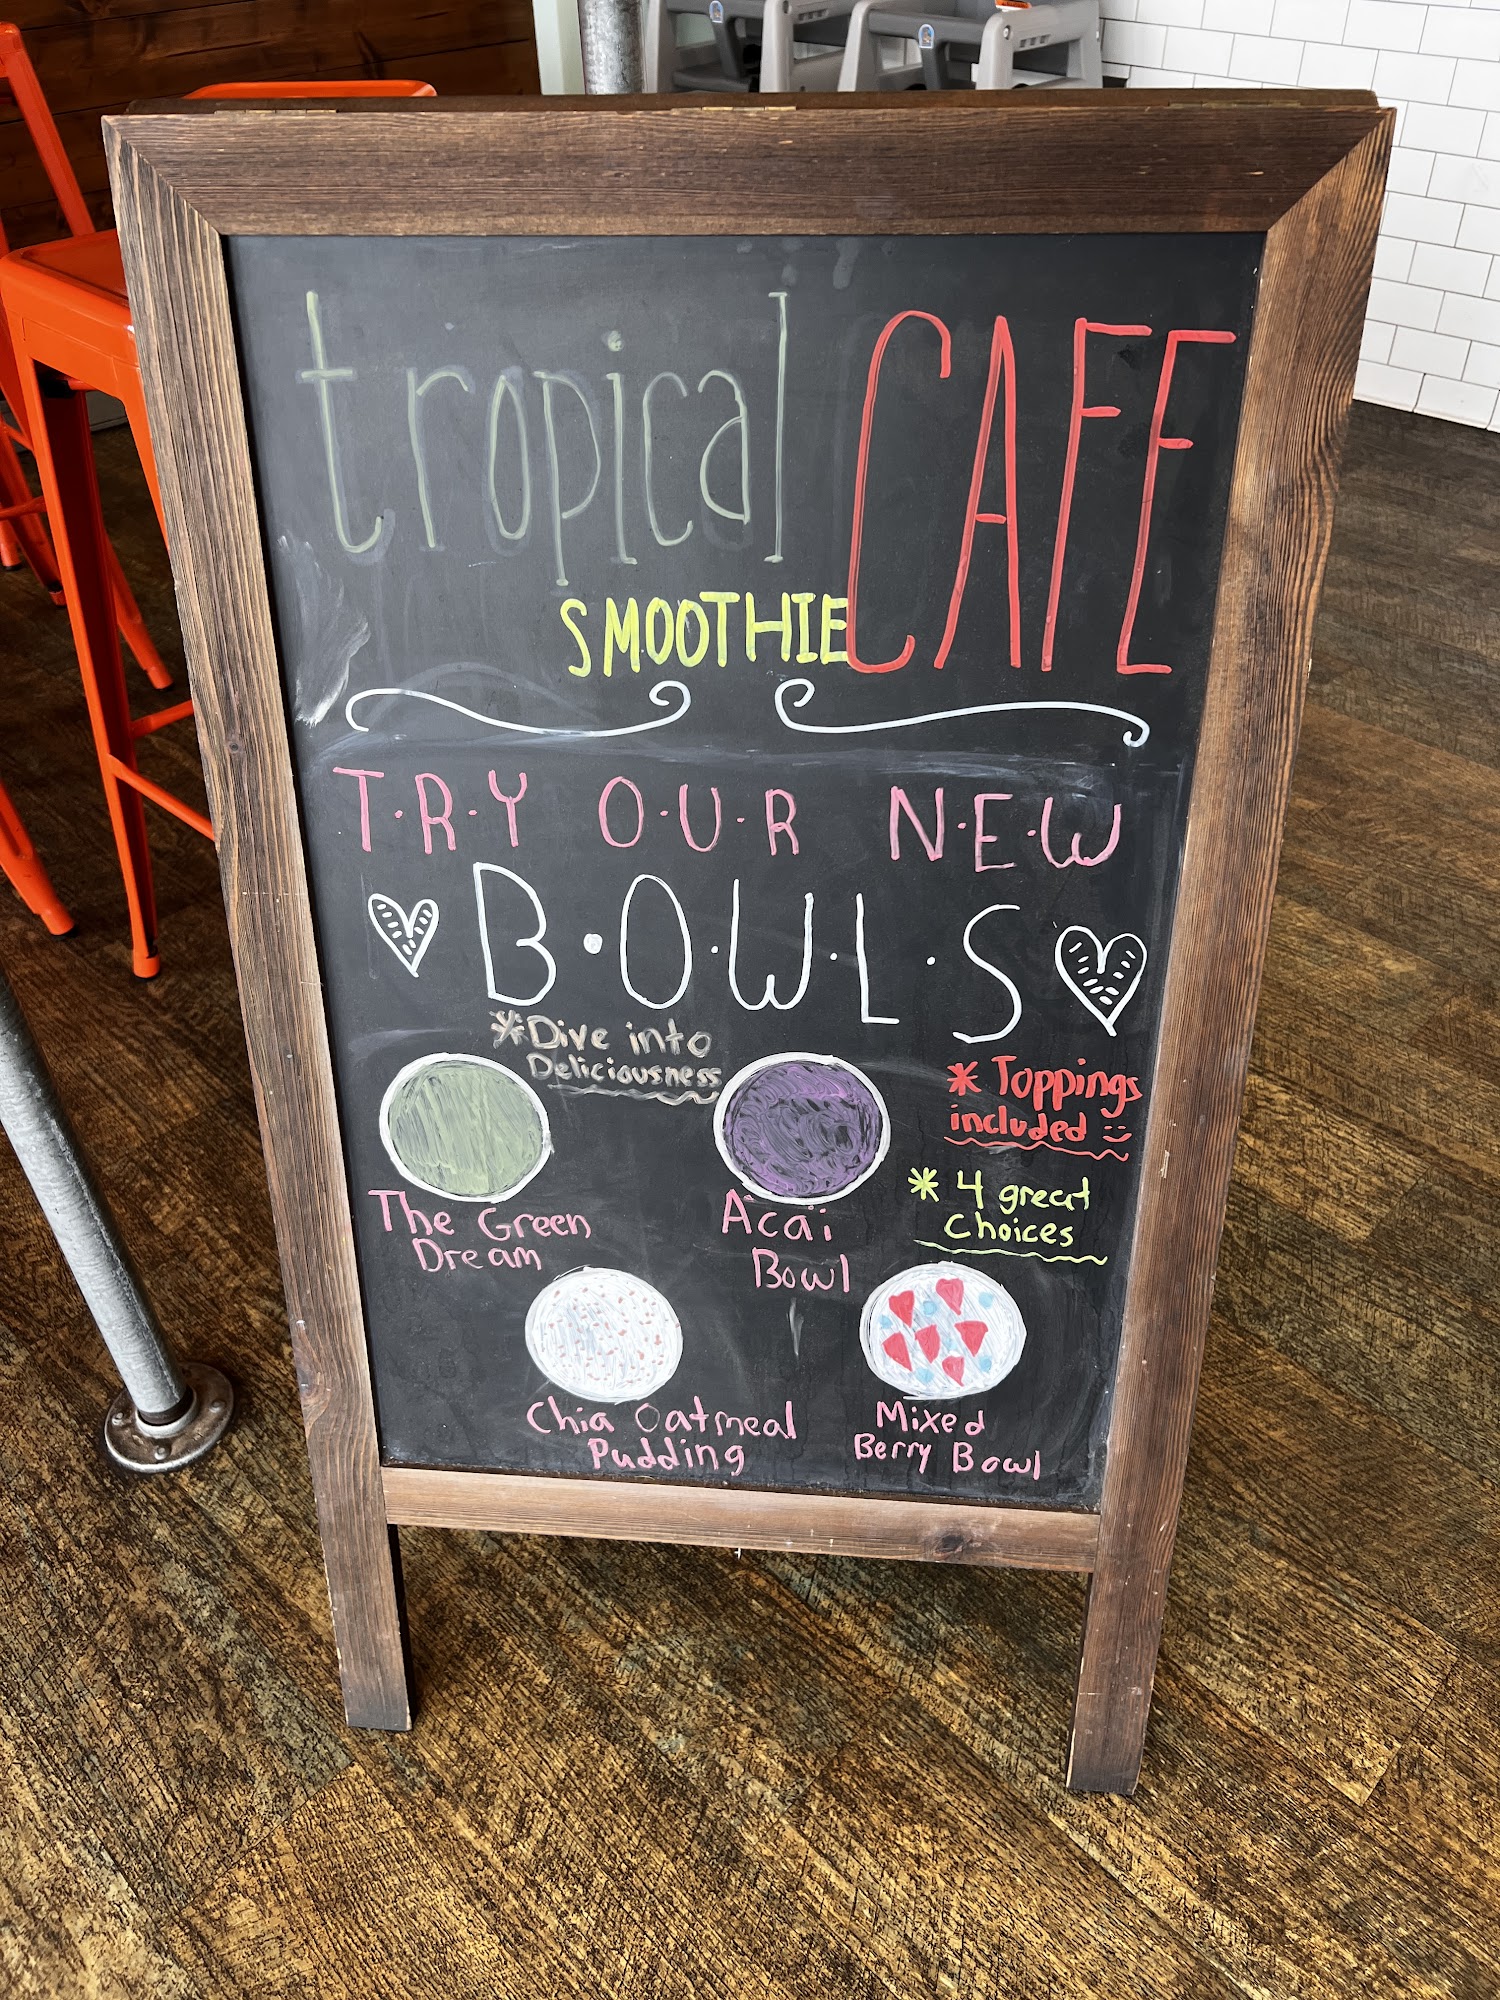 tropical CAFE
SMOOTHIE
T·R·Y O·U·R N·E·W
B·O·W·L·S
*Dive into
Deliciousness
* Toppings
included
* 4 great
choices
The Green
Dream
Acai
Bowl
Chia Oatmeal
Pudding
Mixed
Berry Bowl